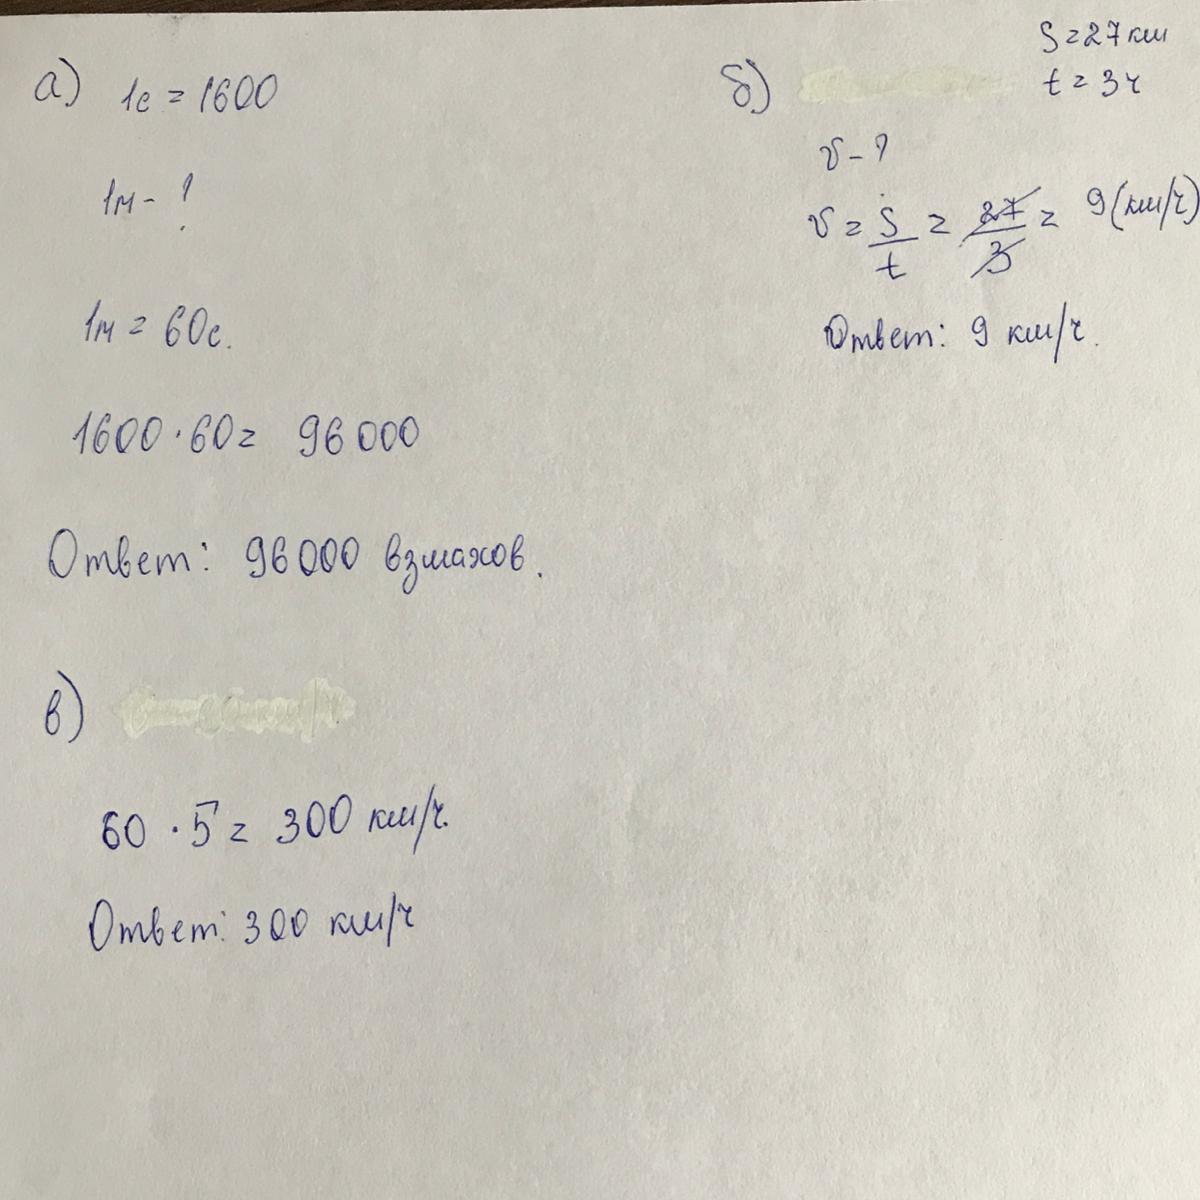 а) 1с = 1600
1м - ?
1м = 60с.
1600 · 60 = 96 000
Ответ: 96 000 взмахов.
б) S = 27 км
t = 3 ч
v - ?
v = S/t = 27/3 = 9 (км/ч)
Ответ: 9 км/ч.
в)
60 · 5 = 300 км/ч.
Ответ: 300 км/ч